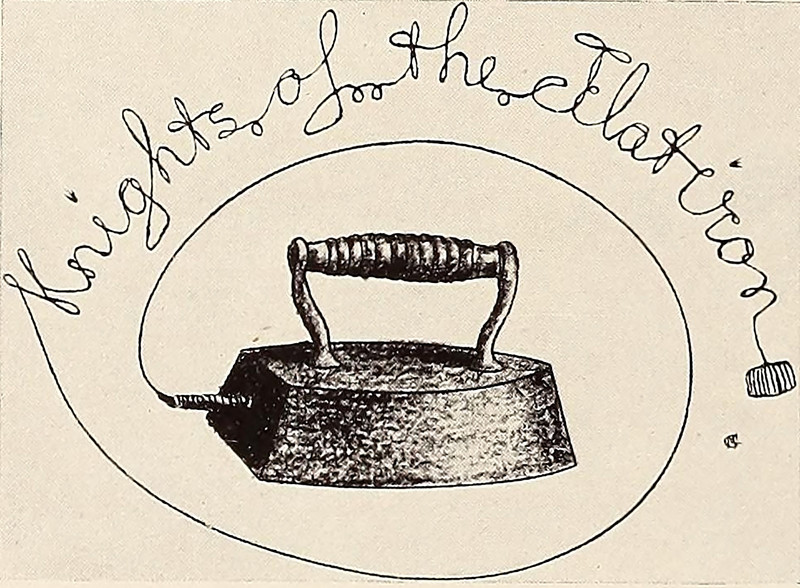 Knights of the Flatiron